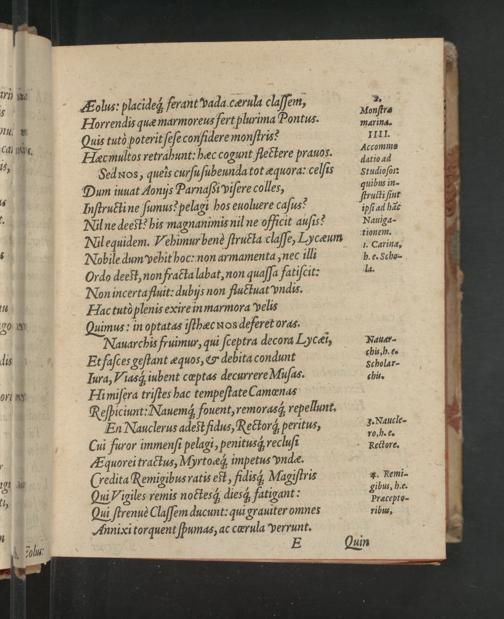 Æolus: placideq́; ferant vada cærula classem,
Horrendis quæ marmoreus fert plurima Pontus.
Quis tutò poterit sese confidere monstris?
Hæc multos retrahunt: hæc cogunt flectere prauos.
Sed NOS, queis cursu subeunda tot æquora: celsis
Dum iuuat Aonijs Parnassi visere colles,
Instructi ne sumus? pelagi hos euoluere casus?
Nil ne deest? his magnanimis nil ne officit ausis?
Nil equidem. Vehimur benè structa classe, Lycæum
Nobile dum vehit hoc: non armamenta, nec illi
Ordo deest, non fracta labat, non quassa fatiscit:
Non incerta fluit: dubijs non fluctuat vndis.
Hac tutò plenis exire in marmora velis
Quimus: in optatas isthæc NOS deferet oras.
Nauarchis fruimur, qui sceptra decora Lycæi,
Et fasces gestant æquos, & debita condunt
Iura, Viasq́; iubent cœptas decurrere Musas.
Hi misera tristes hac tempestate Camœnas
Respiciunt: Nauemq́; fouent, remorasq́; repellunt.
En Nauclerus adest fidus, Rectorq́; peritus,
Cui furor immensi pelagi, penitusq́; reclusi
Æquorei tractus, Myrtoæq́; impetus vndæ.
Credita Remigibus ratis est, fidisq́; Magistris
Qui Vigiles remis noctesq́; diesq́; fatigant:
Qui strenuè Classem ducunt: qui grauiter omnes
Annixi torquent spumas, ac cœrula verrunt.
E Quin
2.
Monstra
marina.
IIII.
Accommo
datio ad
Studiosos:
quibus in-
structi sint
ipsi ad hãc
Nauiga-
tionem.
1. Carina,
h. e. Scho-
la.
Nauar-
chis, h. e.
Scholar-
chis.
3. Naucle-
ro, h. e.
Rectore.
4. Remi-
gibus, h. e.
Præcepto-
ribus,
Eolus: